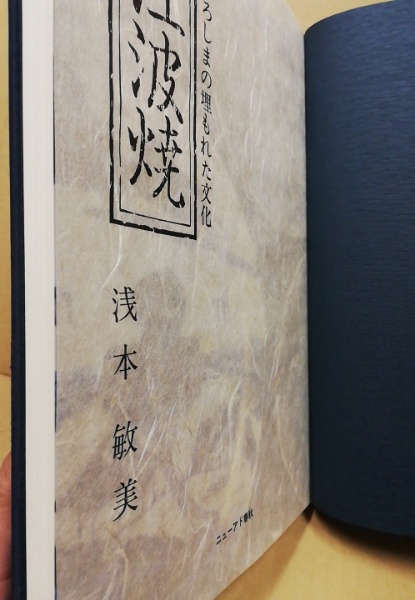 ろしまの埋もれた文化
江波焼
浅本敏美
ニューアド